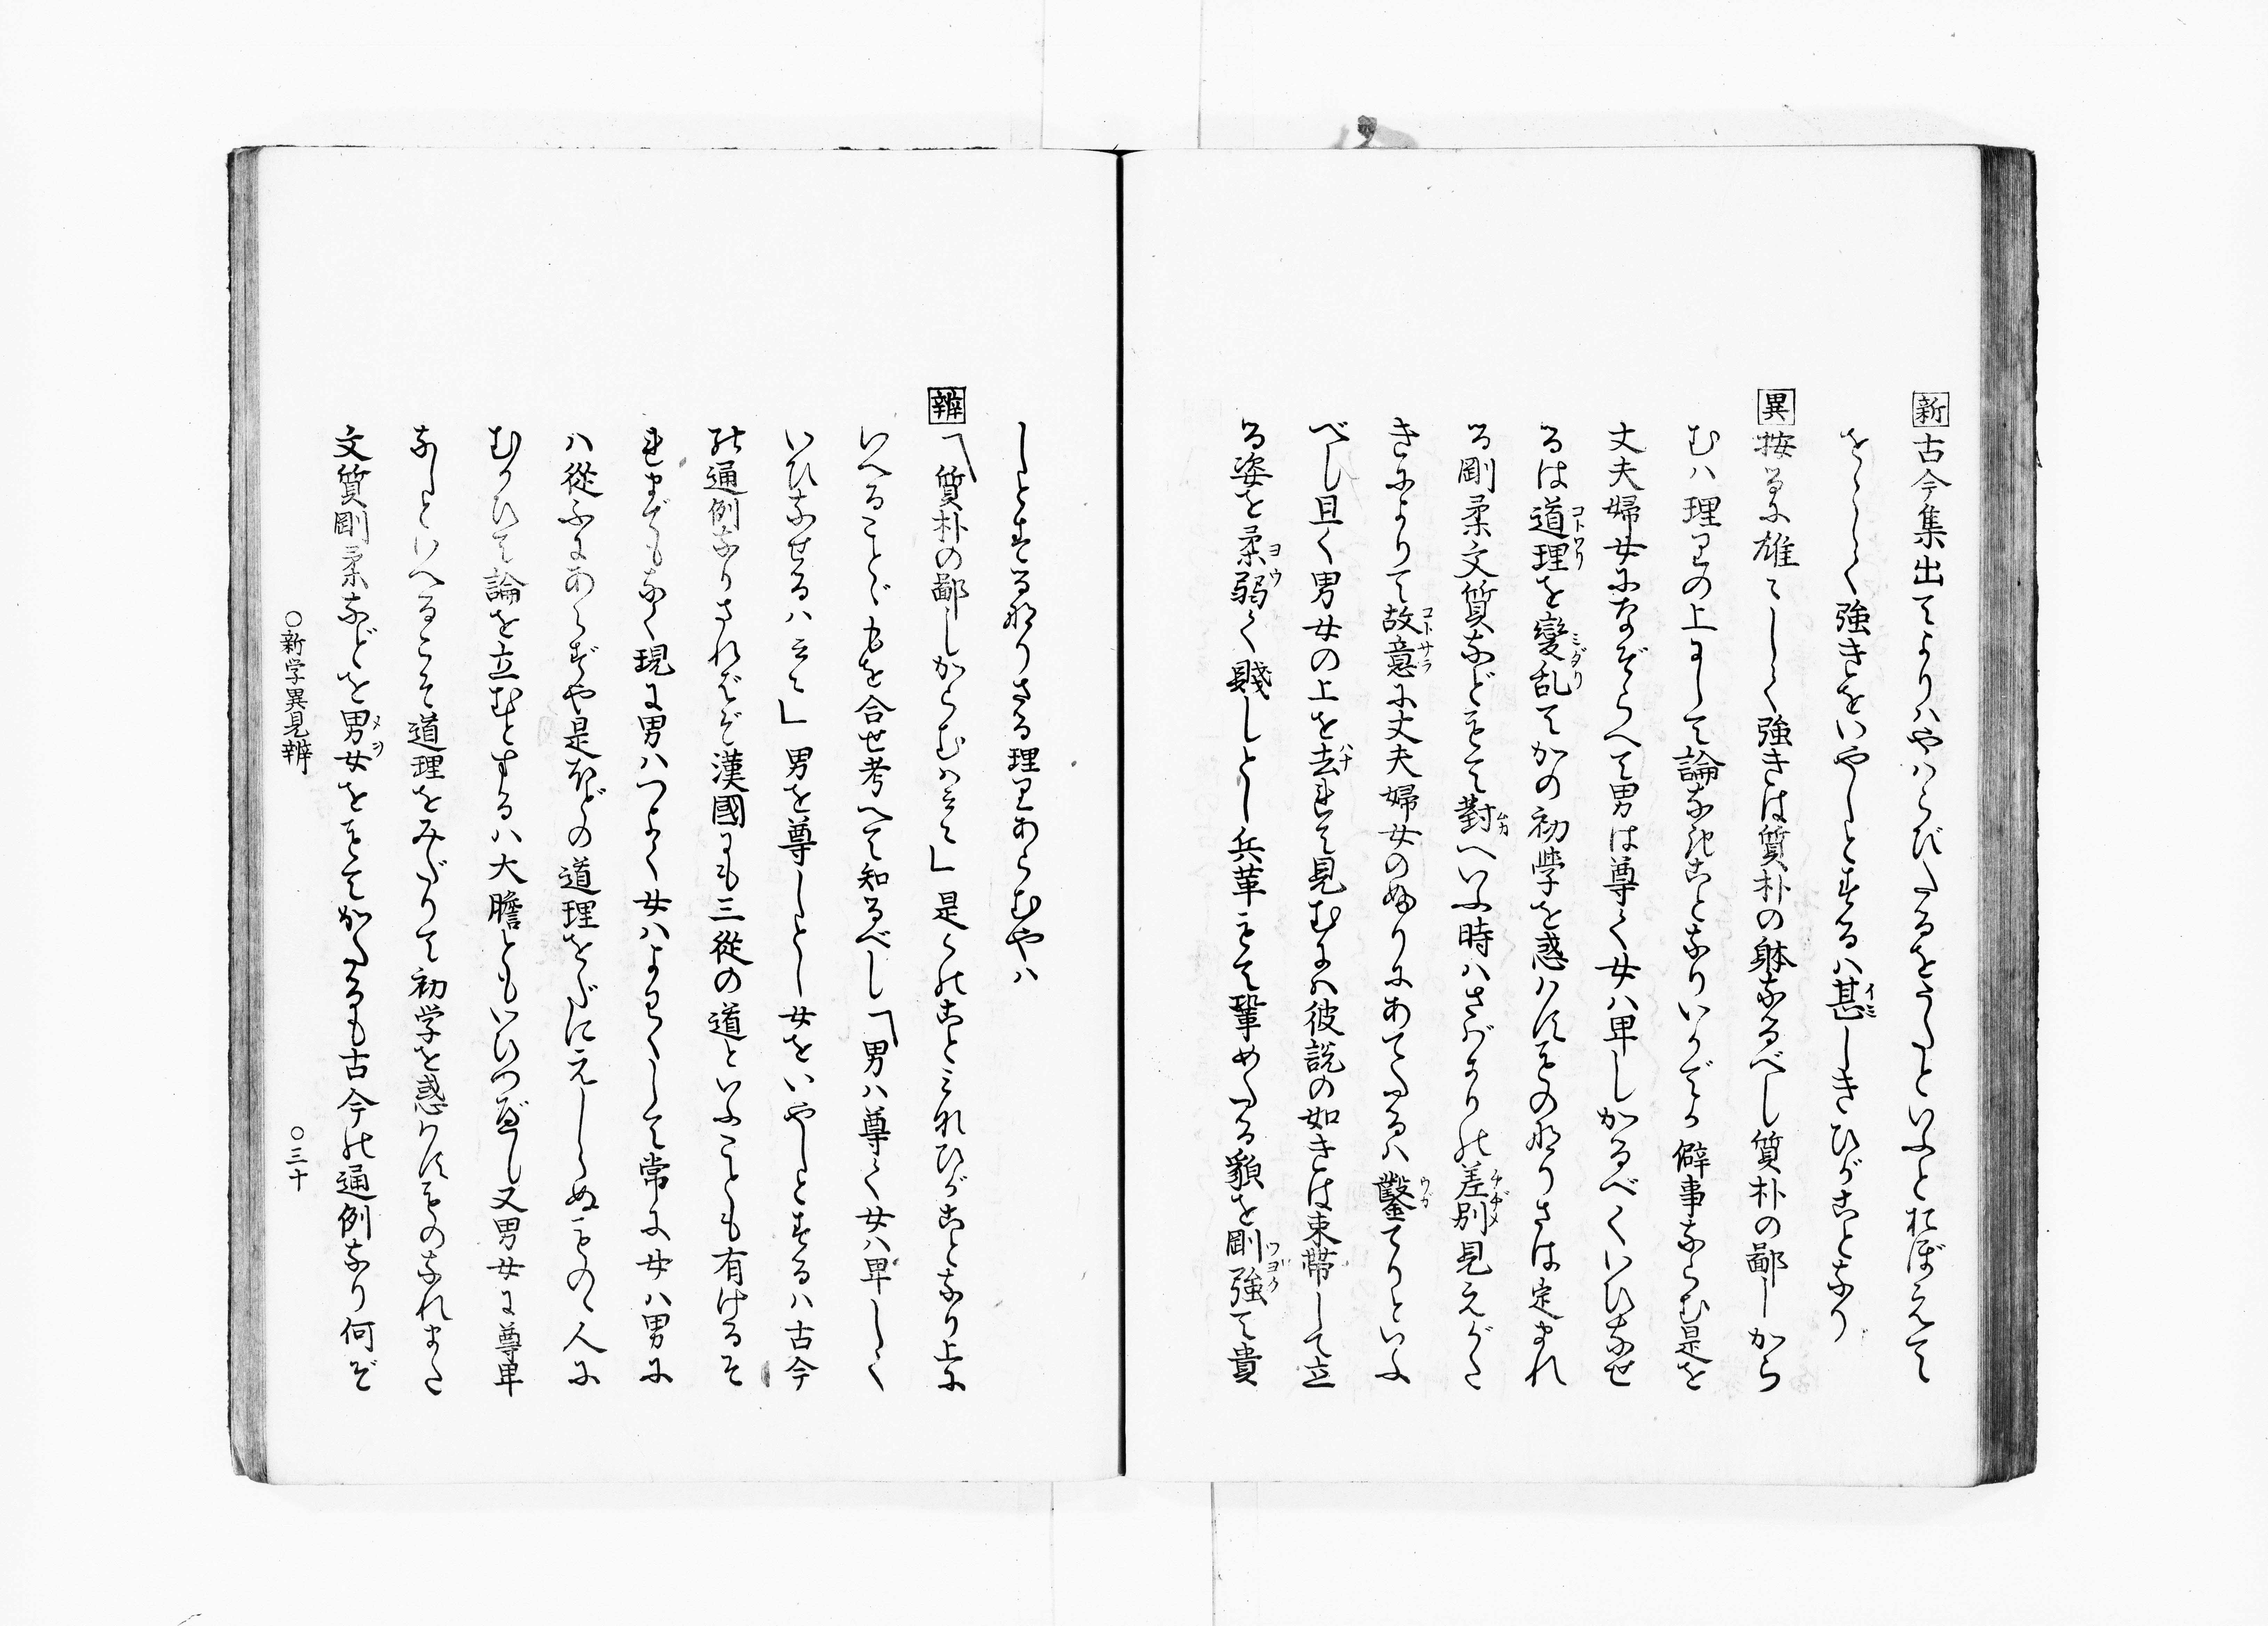 新古今集出てよりはやはらびたるをうたといふとおぼえて
をゝしく強きをいやしとするハ甚しきひがことなり
異按るに雄々しく強きは質朴の躰なるべし質朴の鄙しから
むハ理りの上にして論なきことなりいかでか僻事ならむ是を
丈夫婦女になぞらへて男は尊く女ハ卑しかるべくいひなせ
るは道理を變乱てかの初学を惑はすものなりさは定まれ
る剛柔文質などもて對へいふ時ハさばかりの差別見えがた
きによりて故意に丈夫婦女のぬりにあてたるハ鑿てりといふ
べし且く男女の上を去れて見むにハ彼説の如きは束帯して立
る姿を柔弱く賤しとし兵革もて鞏めたる貌を剛強て貴
しとする也さる理りあらむやハ
辨「質朴の鄙しからむハ云々」是らのことみなひがことなり上に
いへることゞもを合せ考へて知るべし「男ハ尊く女ハ卑しく
いひなせるハ云々」男を尊しとし女をいやしとするハ古今
の通例なりされバぞ漢國にも三従の道といふことも有けるそ
れまでもなく現に男ハつよく女ハよわくして常に女ハ男に
ハ從ふにあらずや是ほどの道理をだに元しらぬものゝ人に
むかひて論を立むとするハ大膽ともいひつべし又男女に尊卑
なしといへるこそ道理をみだりて初学を惑はすものなれまた
文質剛柔などを男女をもてかたるも古今の通例なり何ぞ
○新学異見辨
○三十